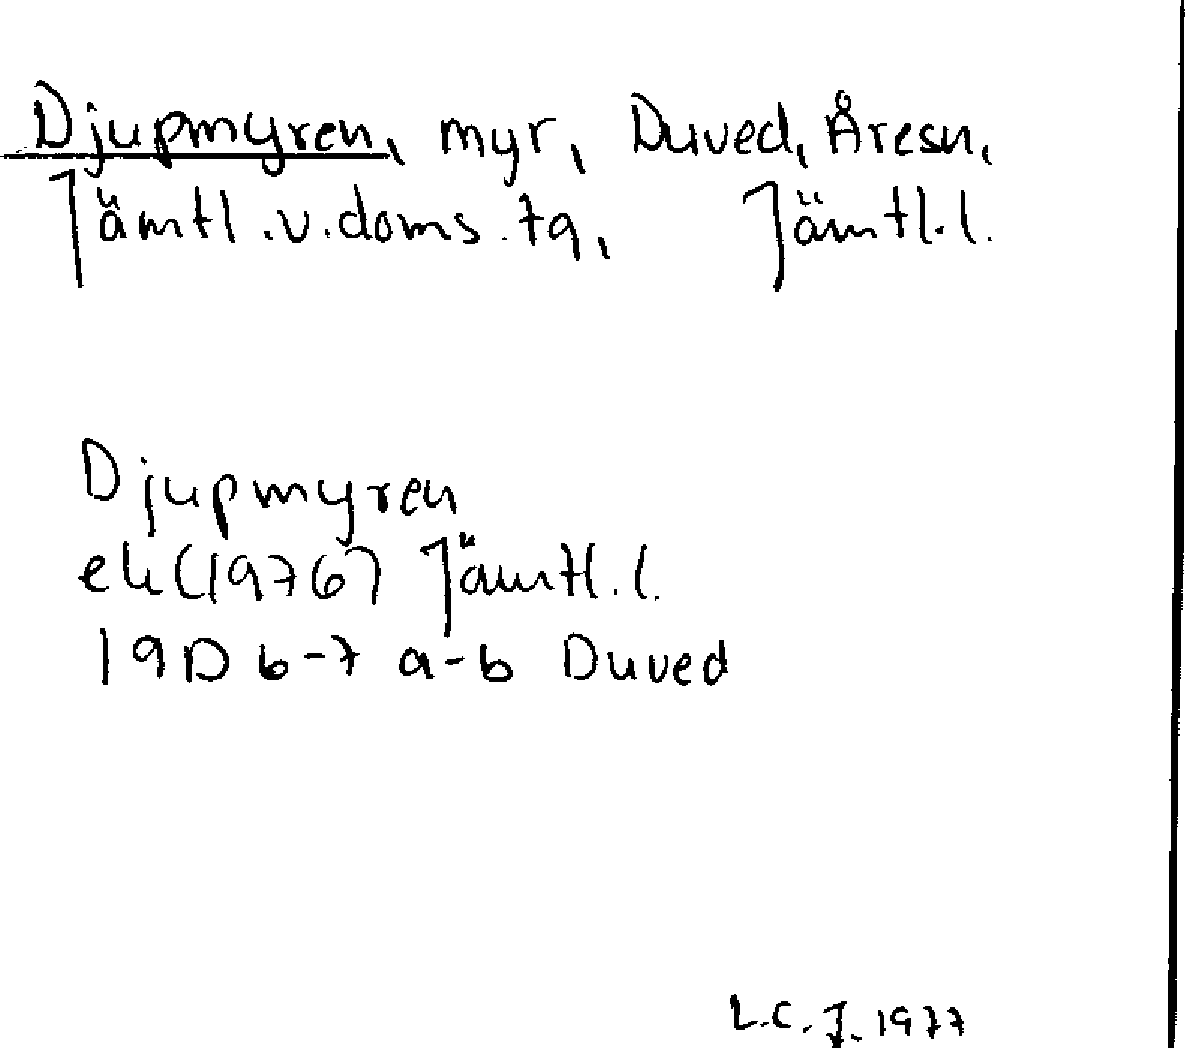 Djupmyren, myr, Duved, Åresn,
Jämtl.v.doms.tg, Jämtl.l.
Djupmyren
ek(1976) Jämtl.l.
19D 6-7 a-b Duved
L.C.J. 1977